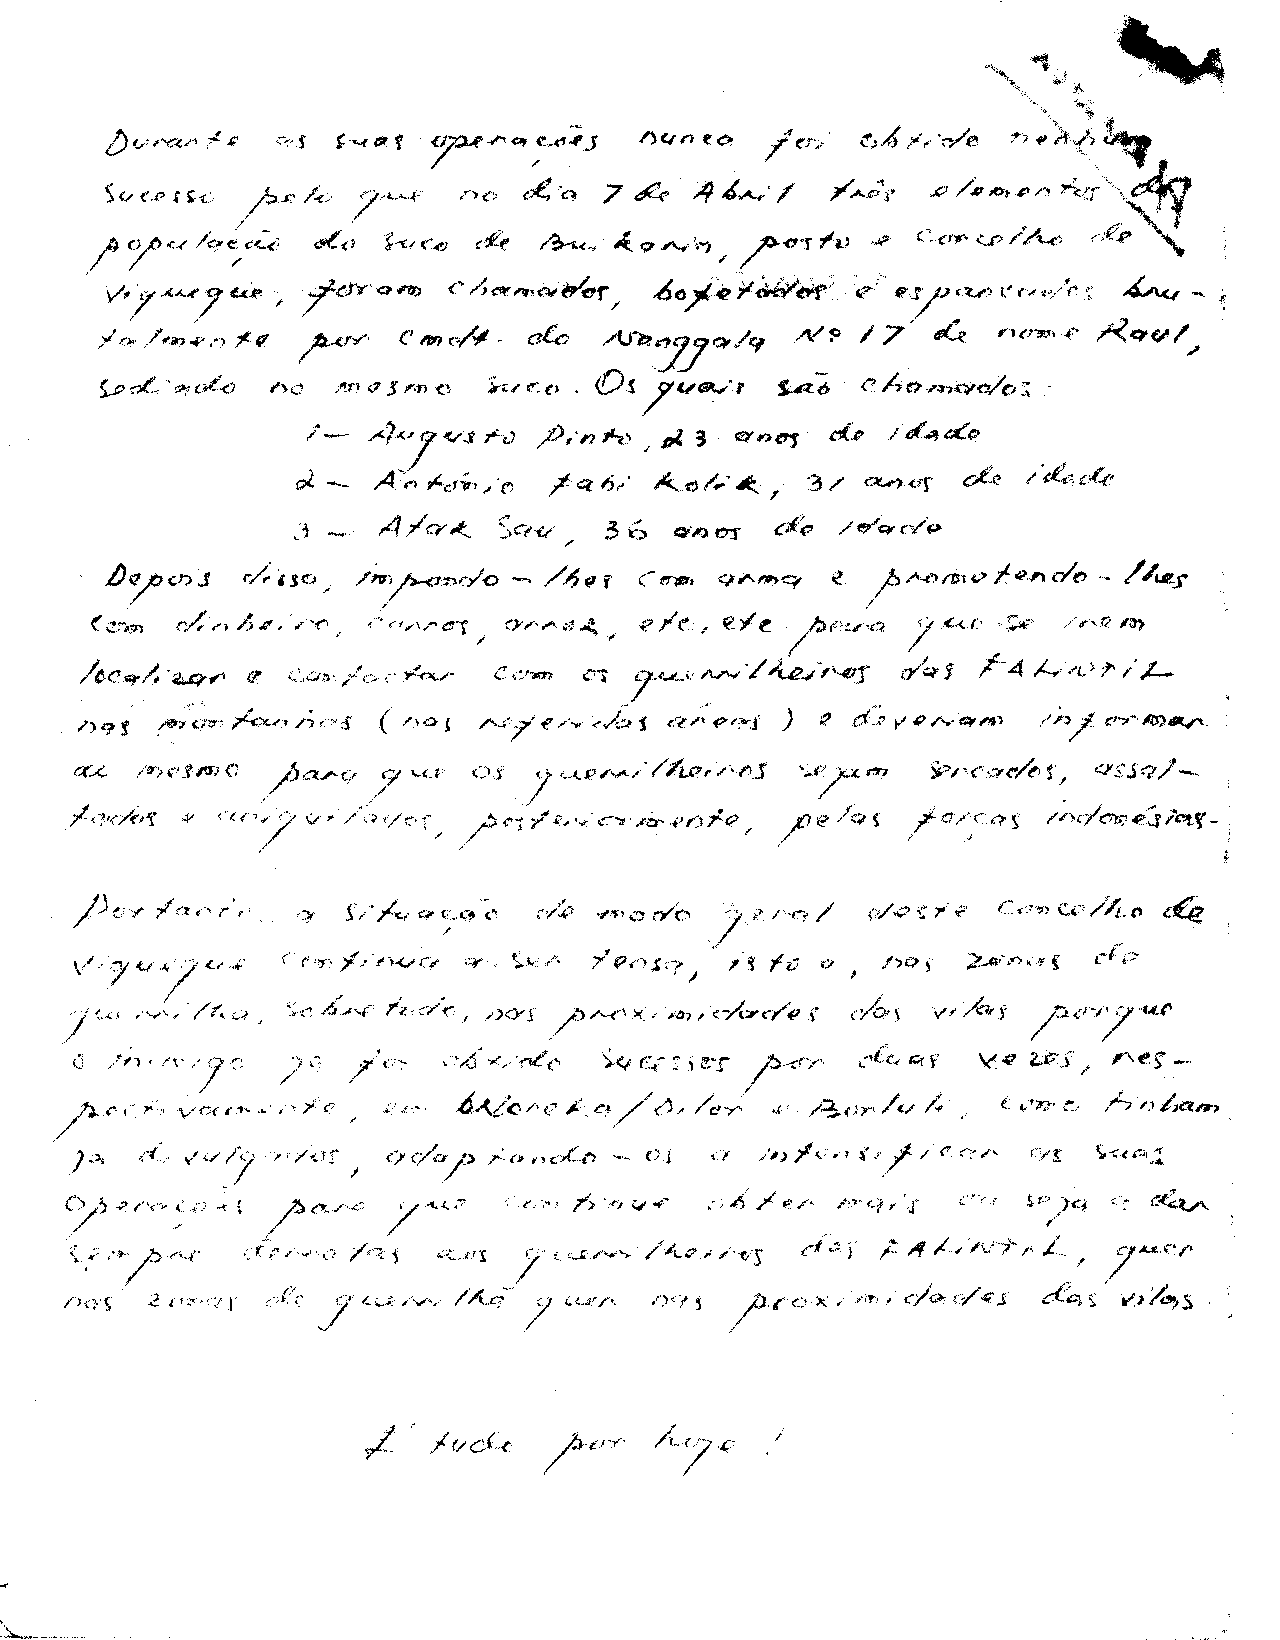 Durante as suas operações nunca foi obtido nenhum
sucesso pelo que no dia 7 de Abril três elementos da
população do suco de Buikarin, posto e Concelho de
Viqueque, foram chamados, bofetados e espancados bru-
talmente por Cmdt. do Nanggala Nº 17 de nome Raul,
sediado no mesmo suco. Os quais são chamados:
1 - Augusto Pinto, 23 anos de idade
2 - António Fabi Kolik, 31 anos de idade
3 - Atak Sau, 36 anos de idade
Depois disso, impondo-lhes com arma e prometendo-lhes
com dinheiro, carros, arroz, etc, etc para que se irem
localizar e contactar com os guerrilheiros das FALINTIL
nas montanhas (nas referidas áreas) e deveriam informar
ao mesmo para que os guerrilheiros sejam sercados, assal-
tados e aniquilados, posteriormente, pelas forças indonésias.
Portanto, a situação de modo geral deste Concelho de
Viqueque continua a ser tensa, isto é, nas zonas de
guerrilha, sobretudo, nas proximidades das vilas porque
o inimigo já foi obtido sucessos por duas vezes, res-
pectivamente, em /Dilor e Borluli, como tinham
já divulgados, adaptando-os a intensificar as suas
operações para que continue obter mais ou seja a dar
sempre derrotas aos guerrilheiros das FALINTIL, quer
nas zonas de guerrilha quer nas proximidades das vilas.
É tudo por hoje!